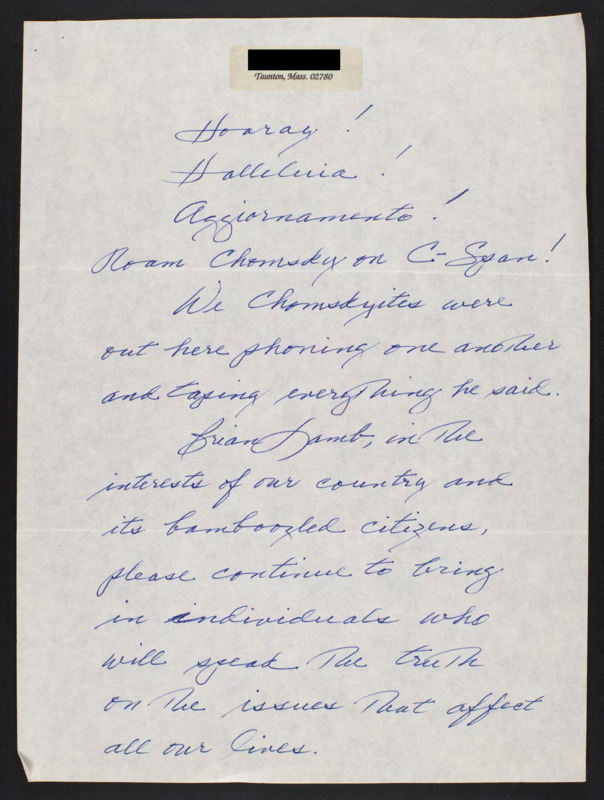 Taunton, Mass. 02780
Hooray!
Halleluia!
Aggiornamento!
Noam Chomsky on C-Span!
We Chomskyites were
out here phoning one another
and taping everything he said.
Brian Lamb, in the
interests of our country and
its bamboozled citizens,
please continue to bring
in individuals who
will speak the truth
on the issues that affect
all our lives.